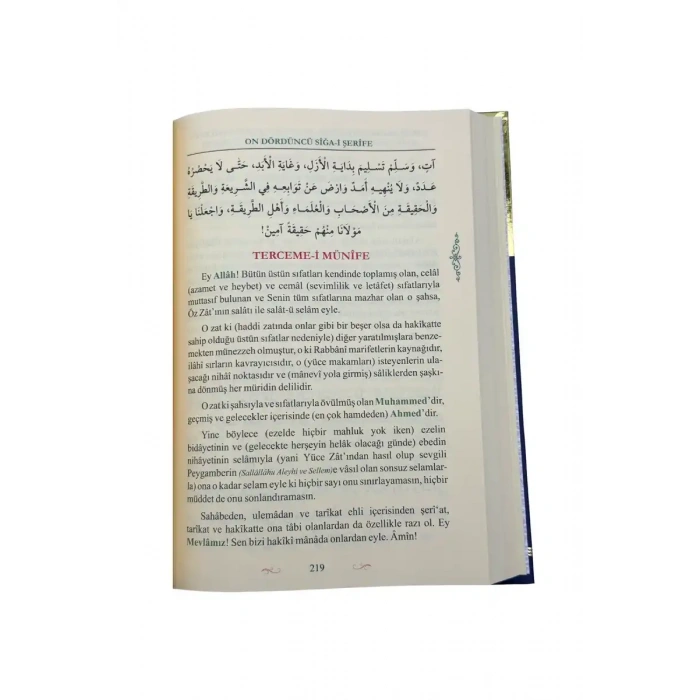 ON DÖRDÜNCÜ SÎĞA-İ ŞERÎFE
آتٍ، وَسَلِّمْ تَسْلِيمَ بِدَايَةِ الْأَزَلِ، وَغَايَةِ الْأَبَدِ، حَتَّى لَا يَحْصُرَهُ
عَدَدٌ، وَلَا يُنْهِيهِ أَمَدٌ وَارْضَ عَنْ تَوَابِعِهِ فِي الشَّرِيعَةِ وَالطَّرِيقَةِ
وَالْحَقِيقَةِ مِنَ الْأَصْحَابِ وَالْعُلَمَاءِ وَأَهْلِ الطَّرِيقَةِ، وَاجْعَلْنَا يَا
مَوْلَانَا مِنْهُمْ حَقِيقَةً آمِينْ!
TERCEME-İ MÜNÎFE
Ey Allâh! Bütün üstün sıfatları kendinde toplamış olan, celâl
(azamet ve heybet) ve cemâl (sevimlilik ve letâfet) sıfatlarıyla
muttasıf bulunan ve Senin tüm sıfatlarına mazhar olan o şahsa,
Öz Zât'ının salâtı ile salât-ü selâm eyle.
O zat ki (haddi zatında onlar gibi bir beşer olsa da hakîkatte
sahip olduğu üstün sıfatlar nedeniyle) diğer yaratılmışlara benze-
mekten münezzeh olmuştur, o ki Rabbânî marifetlerin kaynağıdır,
ilâhî sırların kavrayıcısıdır, o (yüce makamları) isteyenlerin ula-
şacağı nihâî noktasıdır ve (mânevî yola girmiş) sâliklerden şaşkı-
na dönmüş her müridin delilidir.
O zat ki şahsıyla ve sıfatlarıyla övülmüş olan Muhammed'dir,
geçmiş ve gelecekler içerisinde (en çok hamdeden) Ahmed'dir.
Yine böylece (ezelde hiçbir mahluk yok iken) ezelin
bidâyetinin ve (gelecekte herşeyin helâk olacağı günde) ebedin
nihâyetinin selâmıyla (yani Yüce Zât'ından hasıl olup sevgili
Peygamberin (Sallâllâhu Aleyhi ve Sellem)e vâsıl olan sonsuz selamlar-
la) ona o kadar selam eyle ki hiçbir sayı onu sınırlayamasın, hiçbir
müddet de onu sonlandıramasın.
Sahâbeden, ulemâdan ve tarîkat ehli içerisinden şerî'at,
tarîkat ve hakîkatte ona tâbi olanlardan da özellikle razı ol. Ey
Mevlâmız! Sen bizi hakîkî mânâda onlardan eyle. Âmîn!
219